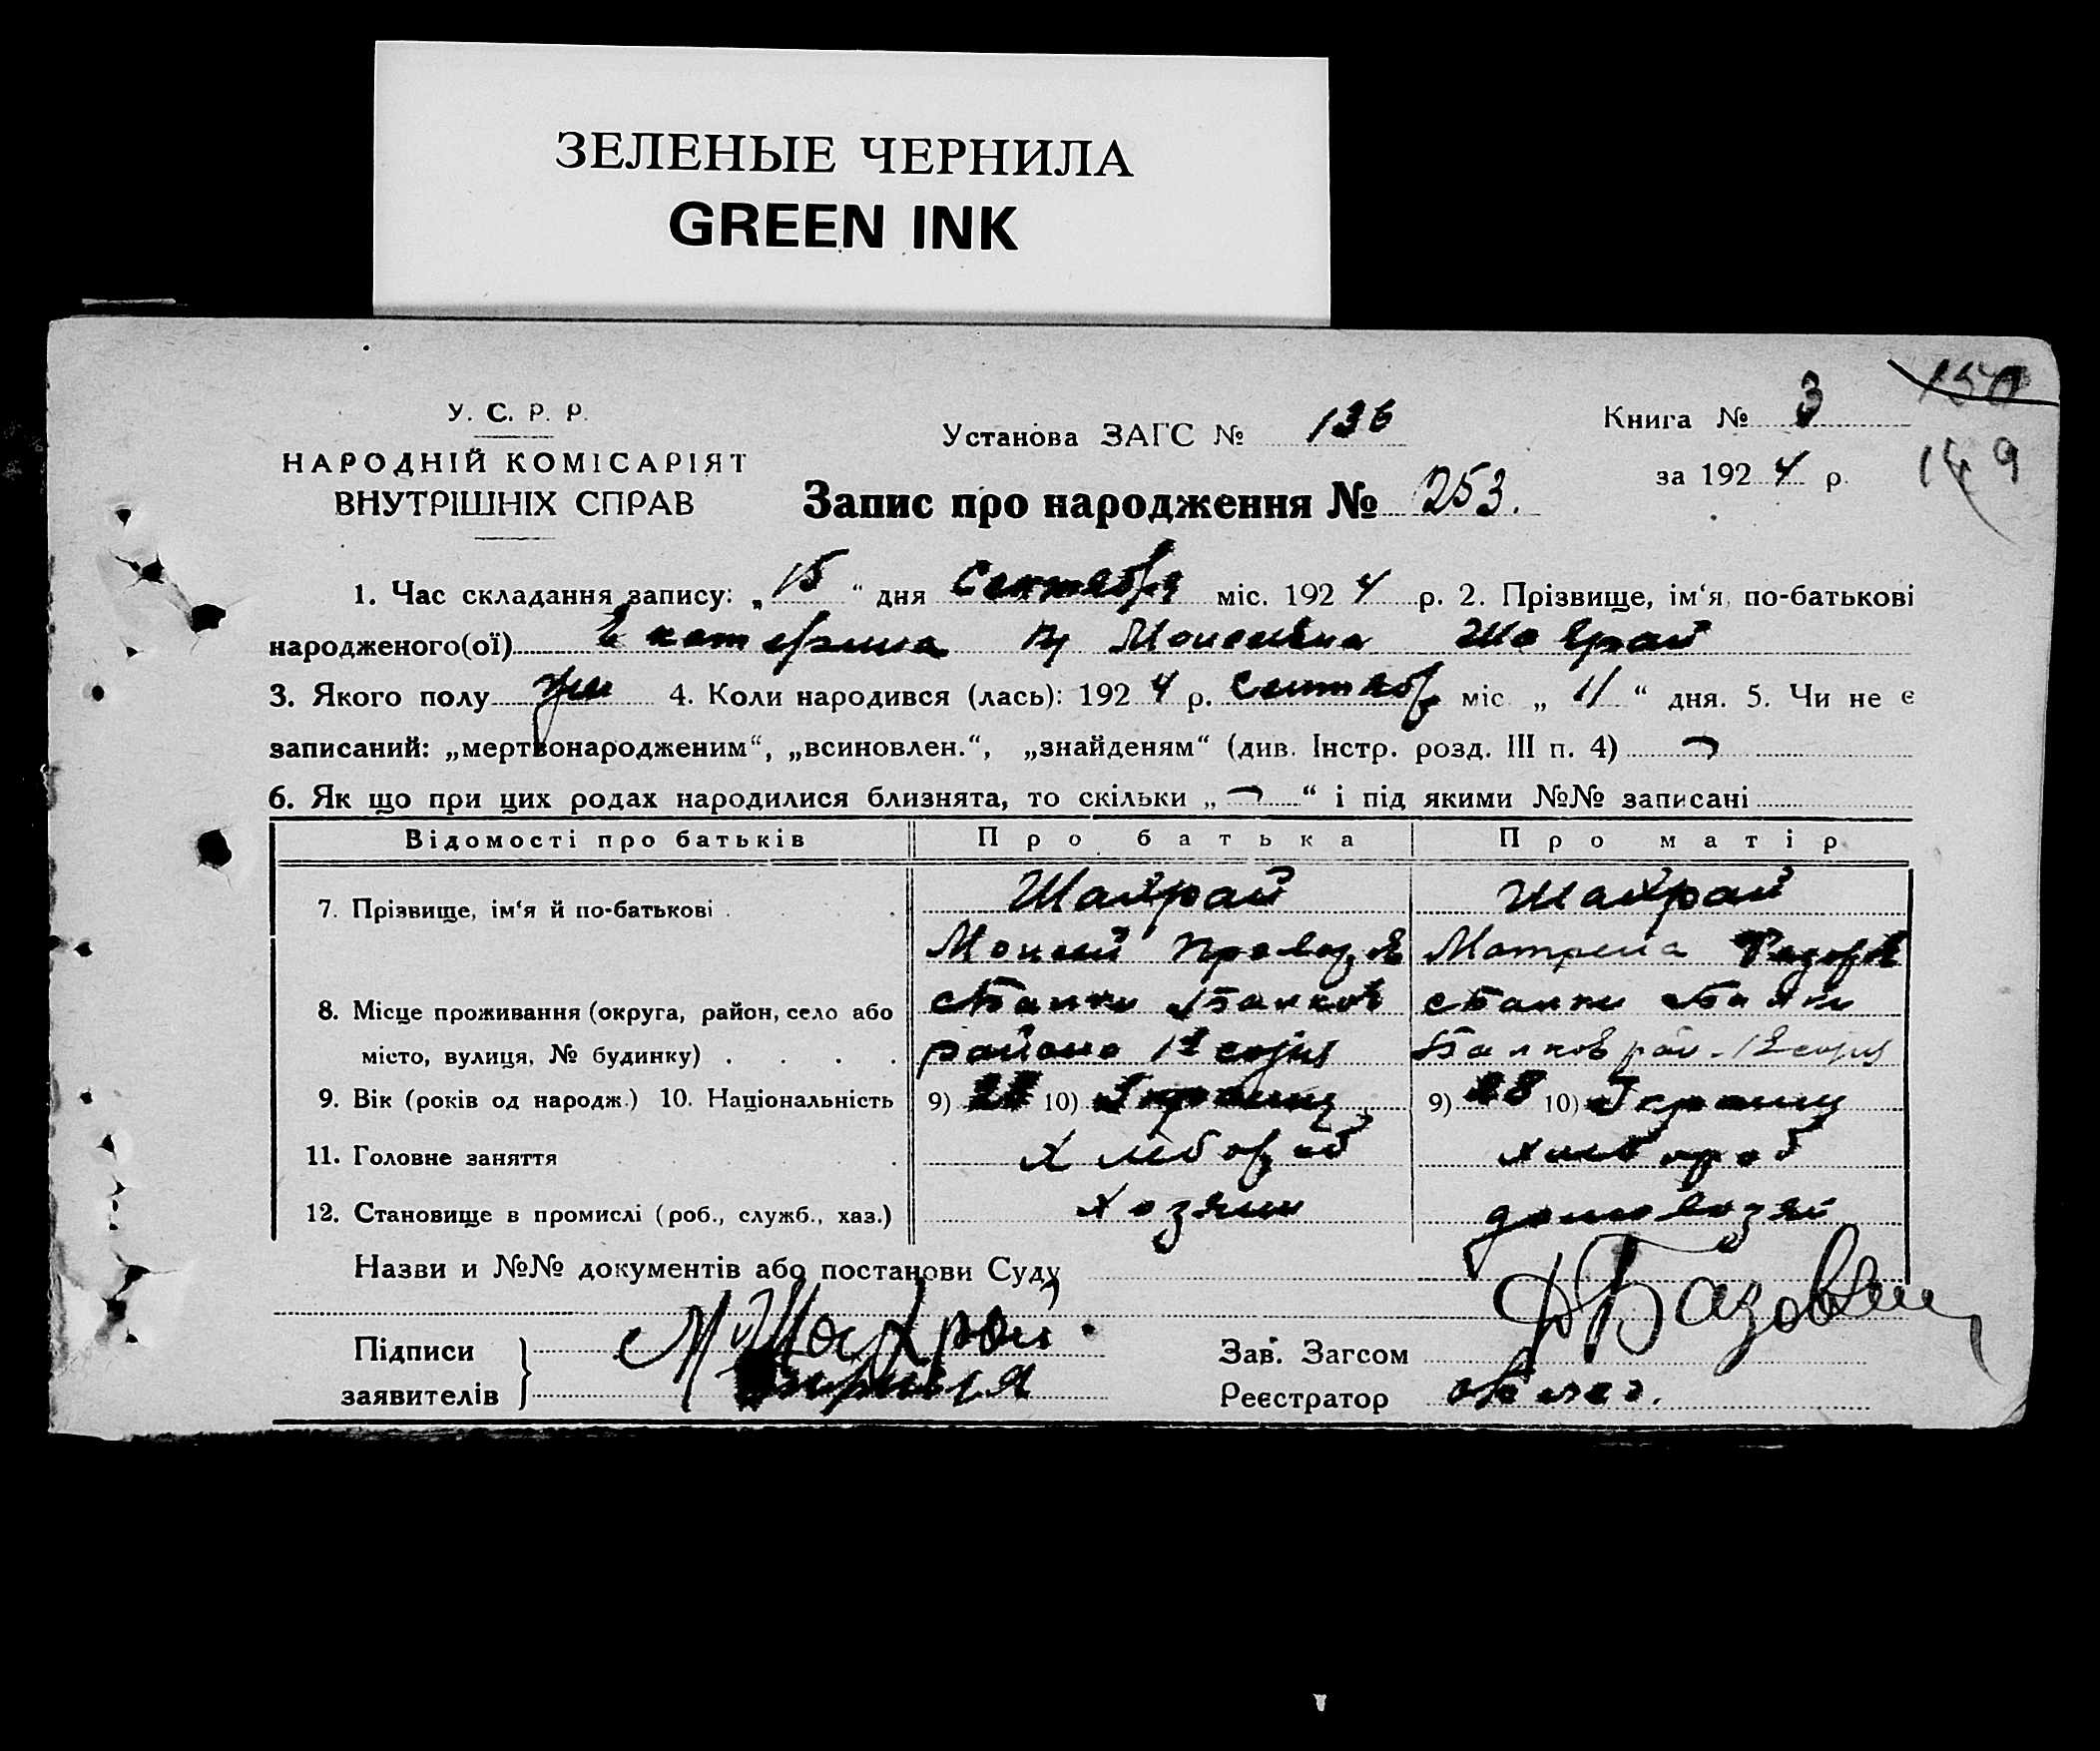 ЗЕЛЕНЫЕ ЧЕРНИЛА
GREEN INK
150
У. С. Р. Р.
НАРОДНІЙ КОМІСАРІЯТ
ВНУТРІШНІХ СПРАВ
Установа ЗАГС № 136
Книга № 3
за 1924 р.
149
Запис про народження № 253.
1. Час складання запису: „15“ дня Сентября міс. 1924 р. 2. Прізвище, ім‘я, по-батькові
народженого(ої) Екатерина Моисеевна Шаврай
3. Якого полу жен 4. Коли народився (лась): 1924 р. Сентябр міс „11“ дня. 5. Чи не є
записаний: „мертвонародженим“, „всиновлен.“, „знайденям“ (див. Інстр. розд. III п. 4)
6. Як що при цих родах народилися близнята, то скільки „ “ і під якими №№ записані
Відомості про батьків Про батька Про матір
7. Прізвище, ім‘я й по-батькові Шаврай Шаврай
Моисей Матрена Федоров
8. Місце проживання (округа, район, село або
місто, вулиця, № будинку) района
9. Вік (років од народж.) 10. Національність 9) 10) Украинц 9) 28 10) Украинц
11. Головне заняття Хлебороб хлебороб
12. Становище в промислі (роб., служб., хаз.) хозяин домохозяй
Назви и №№ документів або постанови Суду
Підписи
заявителів
М. Шаврай
Зав. Загсом
Реєстратор